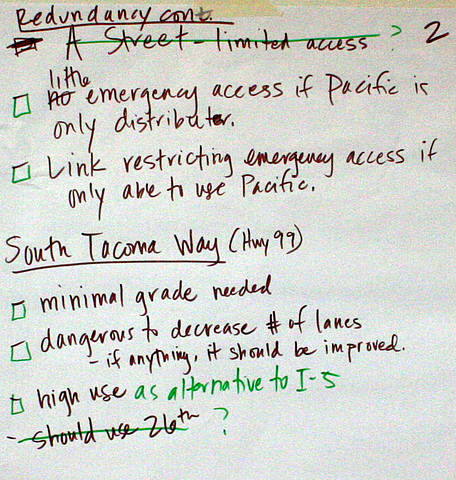 Redundancy cont.
A Street - limited access ? 2
little
no emergency access if Pacific is
only distributer.
Link restricting emergency access if
only able to use Pacific.
South Tacoma Way (Hwy 99)
minimal grade needed
dangerous to decrease # of lanes
- if anything, it should be improved.
high use as alternative to I-5
- should use 26th ?